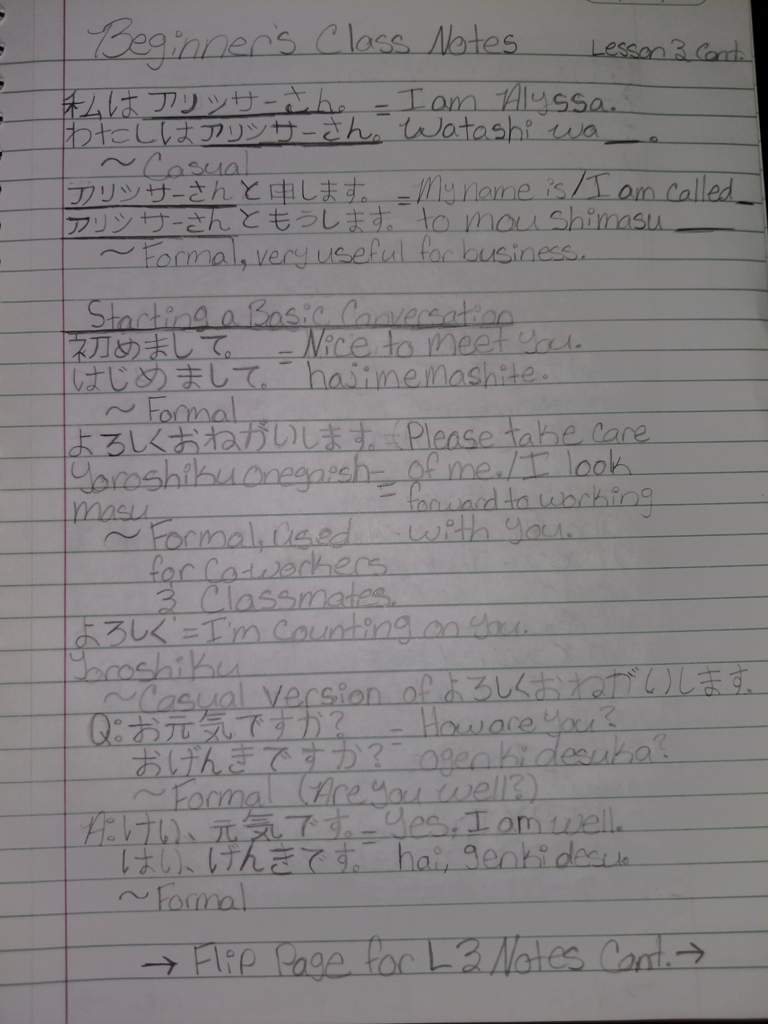 Beginner's Class Notes Lesson 3 Cont.
私は アリッサーさん。 = I am Alyssa.
わたしは アリッサーさん。 Watashi wa __.
~ Casual
アリッサーさんと申します。 = My name is/I am called __
アリッサーさんともうします。 to mou shimasu __
~ Formal, very useful for business.
Starting a Basic Conversation
初めまして。 = Nice to meet you.
はじめまして。 hajimemashite.
~ Formal
よろしくおねがいします。 = Please take care
Yoroshiku onegaish- = of me./I look
masu forward to working
~ Formal, used with you.
for co-workers
3 Classmates.
よろしく = I'm counting on you.
Yoroshiku
~Casual version of よろしくおねがいします。
Q: お元気ですか? = How are you?
おげんきですか? ogenki desuka?
~ Formal (Are you well?)
A: けい、元気です。 = Yes, I am well.
はい、げんきです。 hai, genki desu.
~ Formal
→ Flip Page for L3 Notes Cont. →